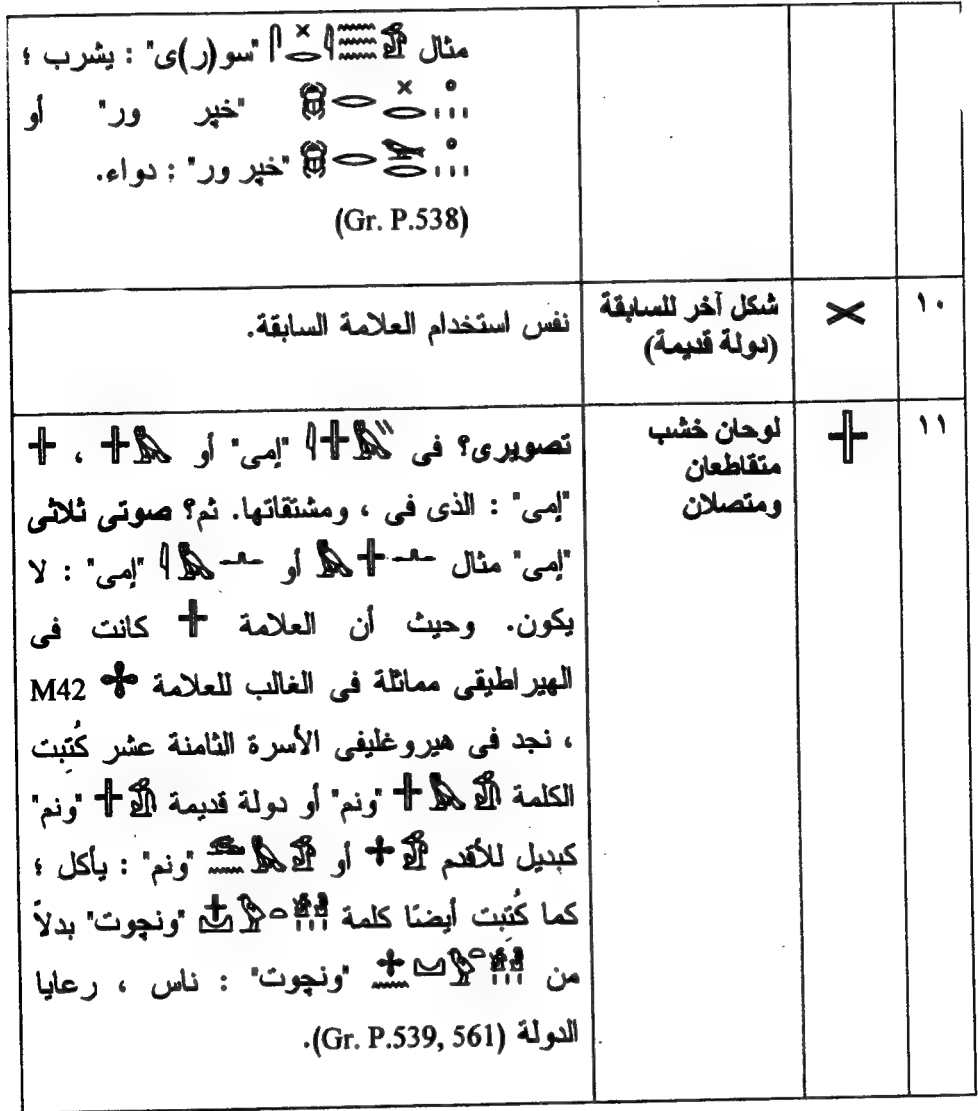 مثال 𓀁𓈗𓇋𓏴𓂋𓋴 "سو(ر)ى" : يشرب ؛
"خپر ور" أو
"خپر ور" : دواء.
(Gr. P.538)
١٠
شكل آخر للسابقة
(دولة قديمة)
نفس استخدام العلامة السابقة.
١١
لوحان خشب
متقاطعان
ومتصلان
تصويرى؟ فى "إمى" أو ، 
"إمى" : الذى فى ، ومشتقاتها. ثم؟ صوتى ثلاثى
"إمى" مثال أو "إمى" : لا
يكون. وحيث أن العلامة كانت فى
الهيراطيقى مماثلة فى الغالب للعلامة M42
، نجد فى هيروغليفى الأسرة الثامنة عشر كُتِبت
الكلمة "ونم" أو دولة قديمة "ونم"
كبديل للأقدم أو "ونم" : يأكل ؛
كما كُتبت أيضًا كلمة "ونچوت" بدلاً
من "ونچوت" : ناس ، رعايا
الدولة (Gr. P.539, 561).